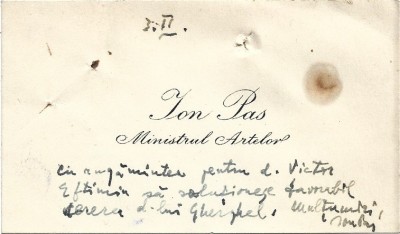 3.II.
Ion Pas
Ministrul Artelor
cu rugămintea pentru d. Victor
Eftimiu să soluționeze favorabil
cererea d-lui Gherghel. Mulțumiri,
Ion Pas